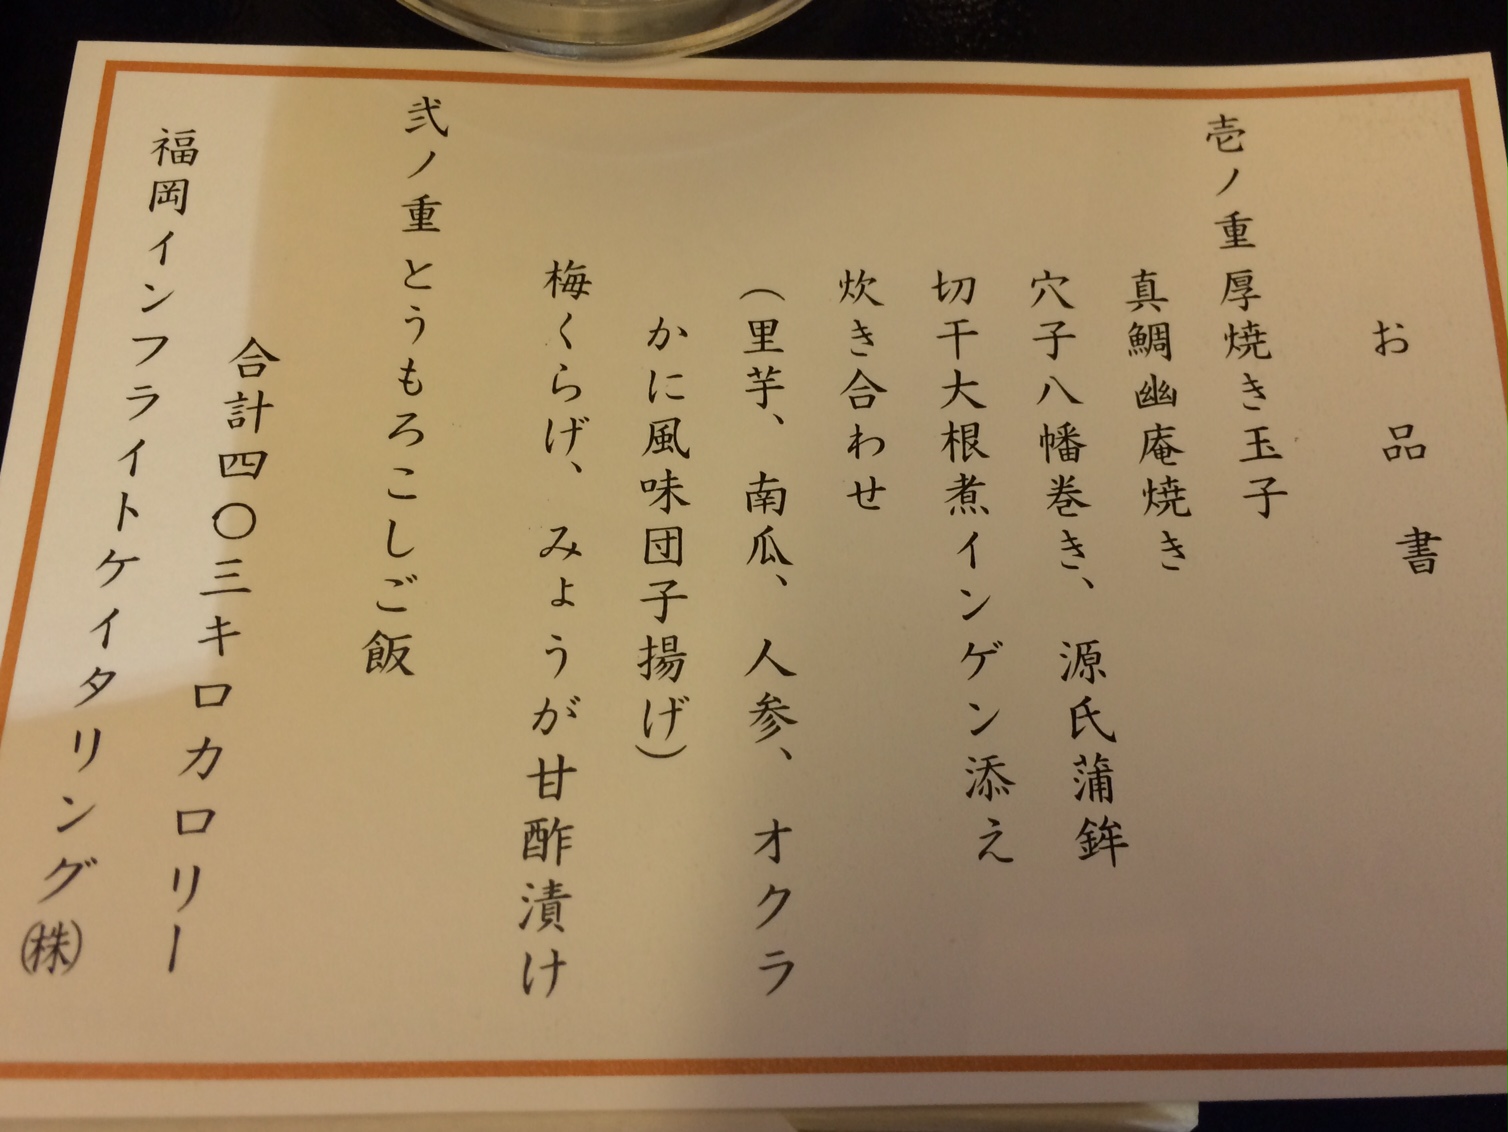 お品書
壱ノ重 厚焼き玉子
真鯛幽庵焼き
穴子八幡巻き、源氏蒲鉾
切干大根煮インゲン添え
炊き合わせ
（里芋、南瓜、人参、オクラ
かに風味団子揚げ）
梅くらげ、みょうが甘酢漬け
弐ノ重 とうもろこしご飯
合計四〇三キロカロリー
福岡インフライトケイタリング㈱